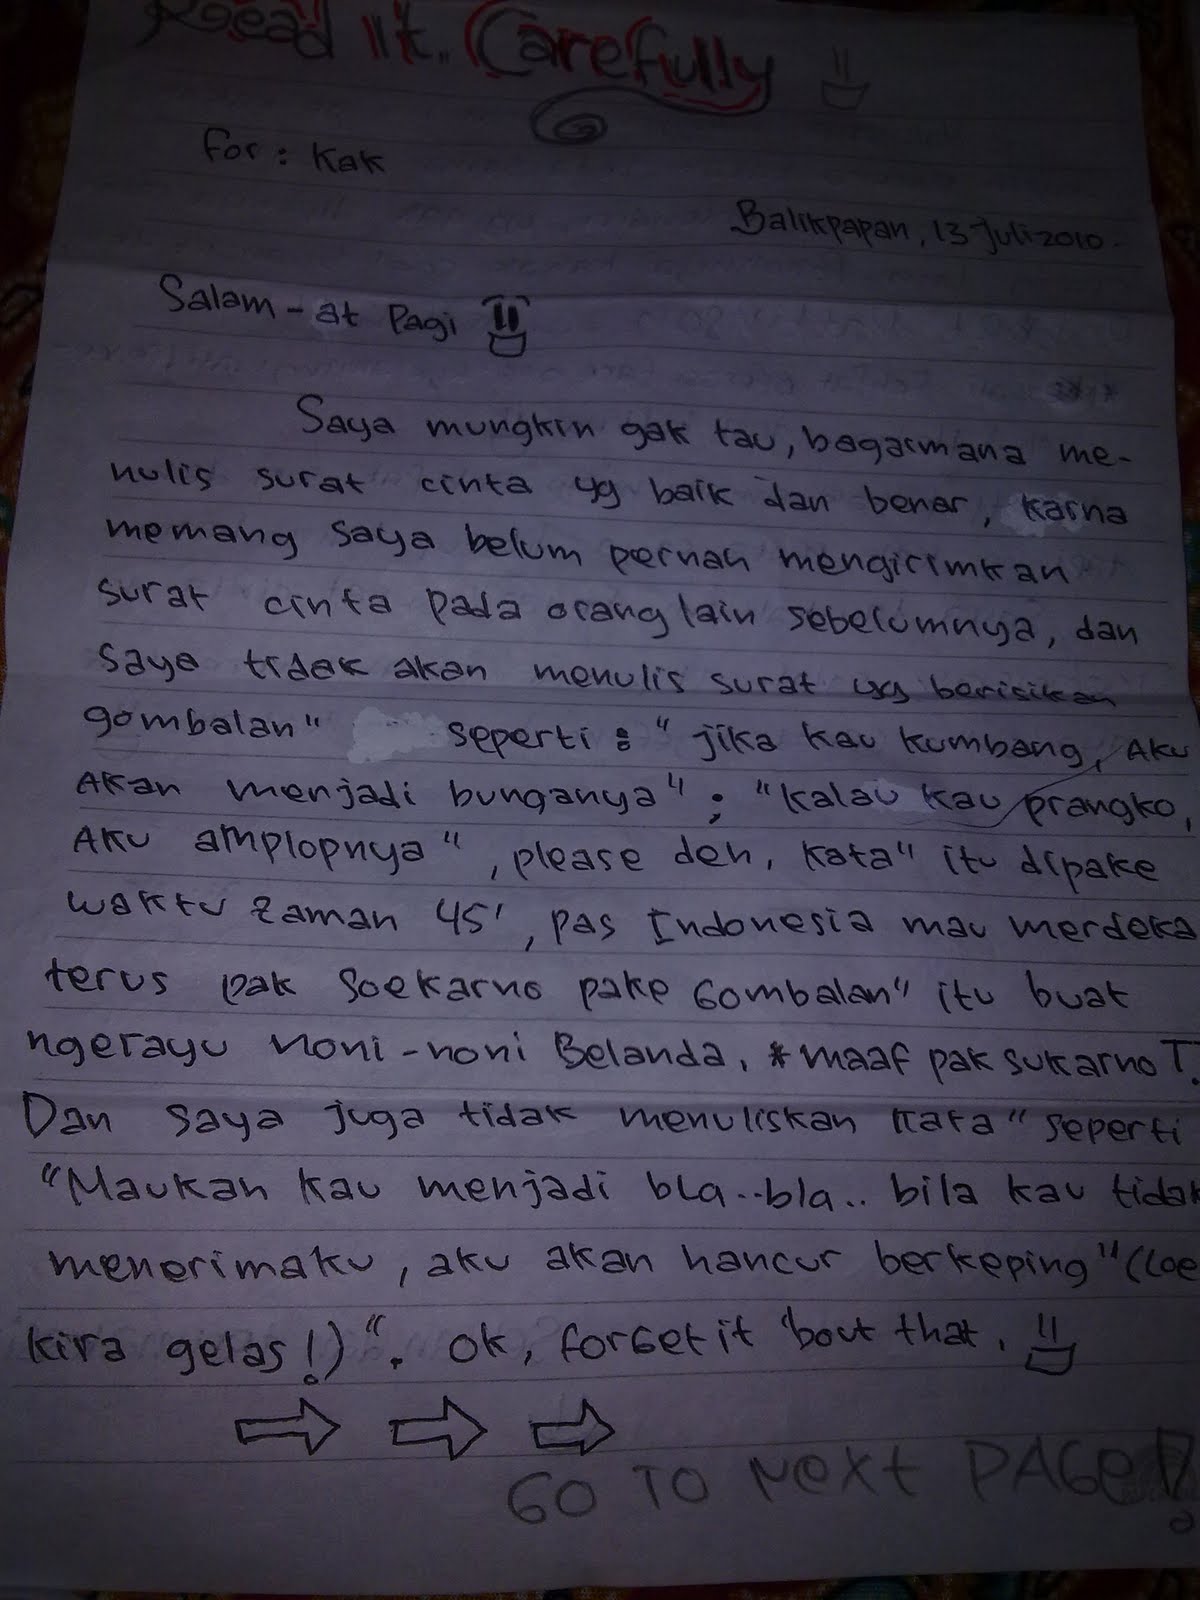 Read It. Carefully
For : Kak
Balikpapan, 13 Juli 2010.
Salam - at Pagi
Saya mungkin gak tau, bagaimana me-
nulis surat cinta yg baik dan benar, karna
memang saya belum pernah mengirimkan
surat cinta pada orang lain sebelumnya, dan
saya tidak akan menulis surat yg berisikan
gombalan" seperti : " jika kau kumbang, Aku
Akan menjadi bunganya" ; "kalau kau prangko,
Aku amplopnya", please deh, kata" itu dipake
waktu zaman 45', pas Indonesia mau merdeka
terus pak Soekarno pake Gombalan" itu buat
ngerayu noni-noni Belanda, *maaf pak sukarno T.
Dan saya juga tidak menuliskan kata" seperti
"Maukah kau menjadi bla..bla.. bila kau tidak
menerimaku, aku akan hancur berkeping" (loe
kira gelas!)". ok, forGet it 'bout that.
GO TO NexT PAGe!